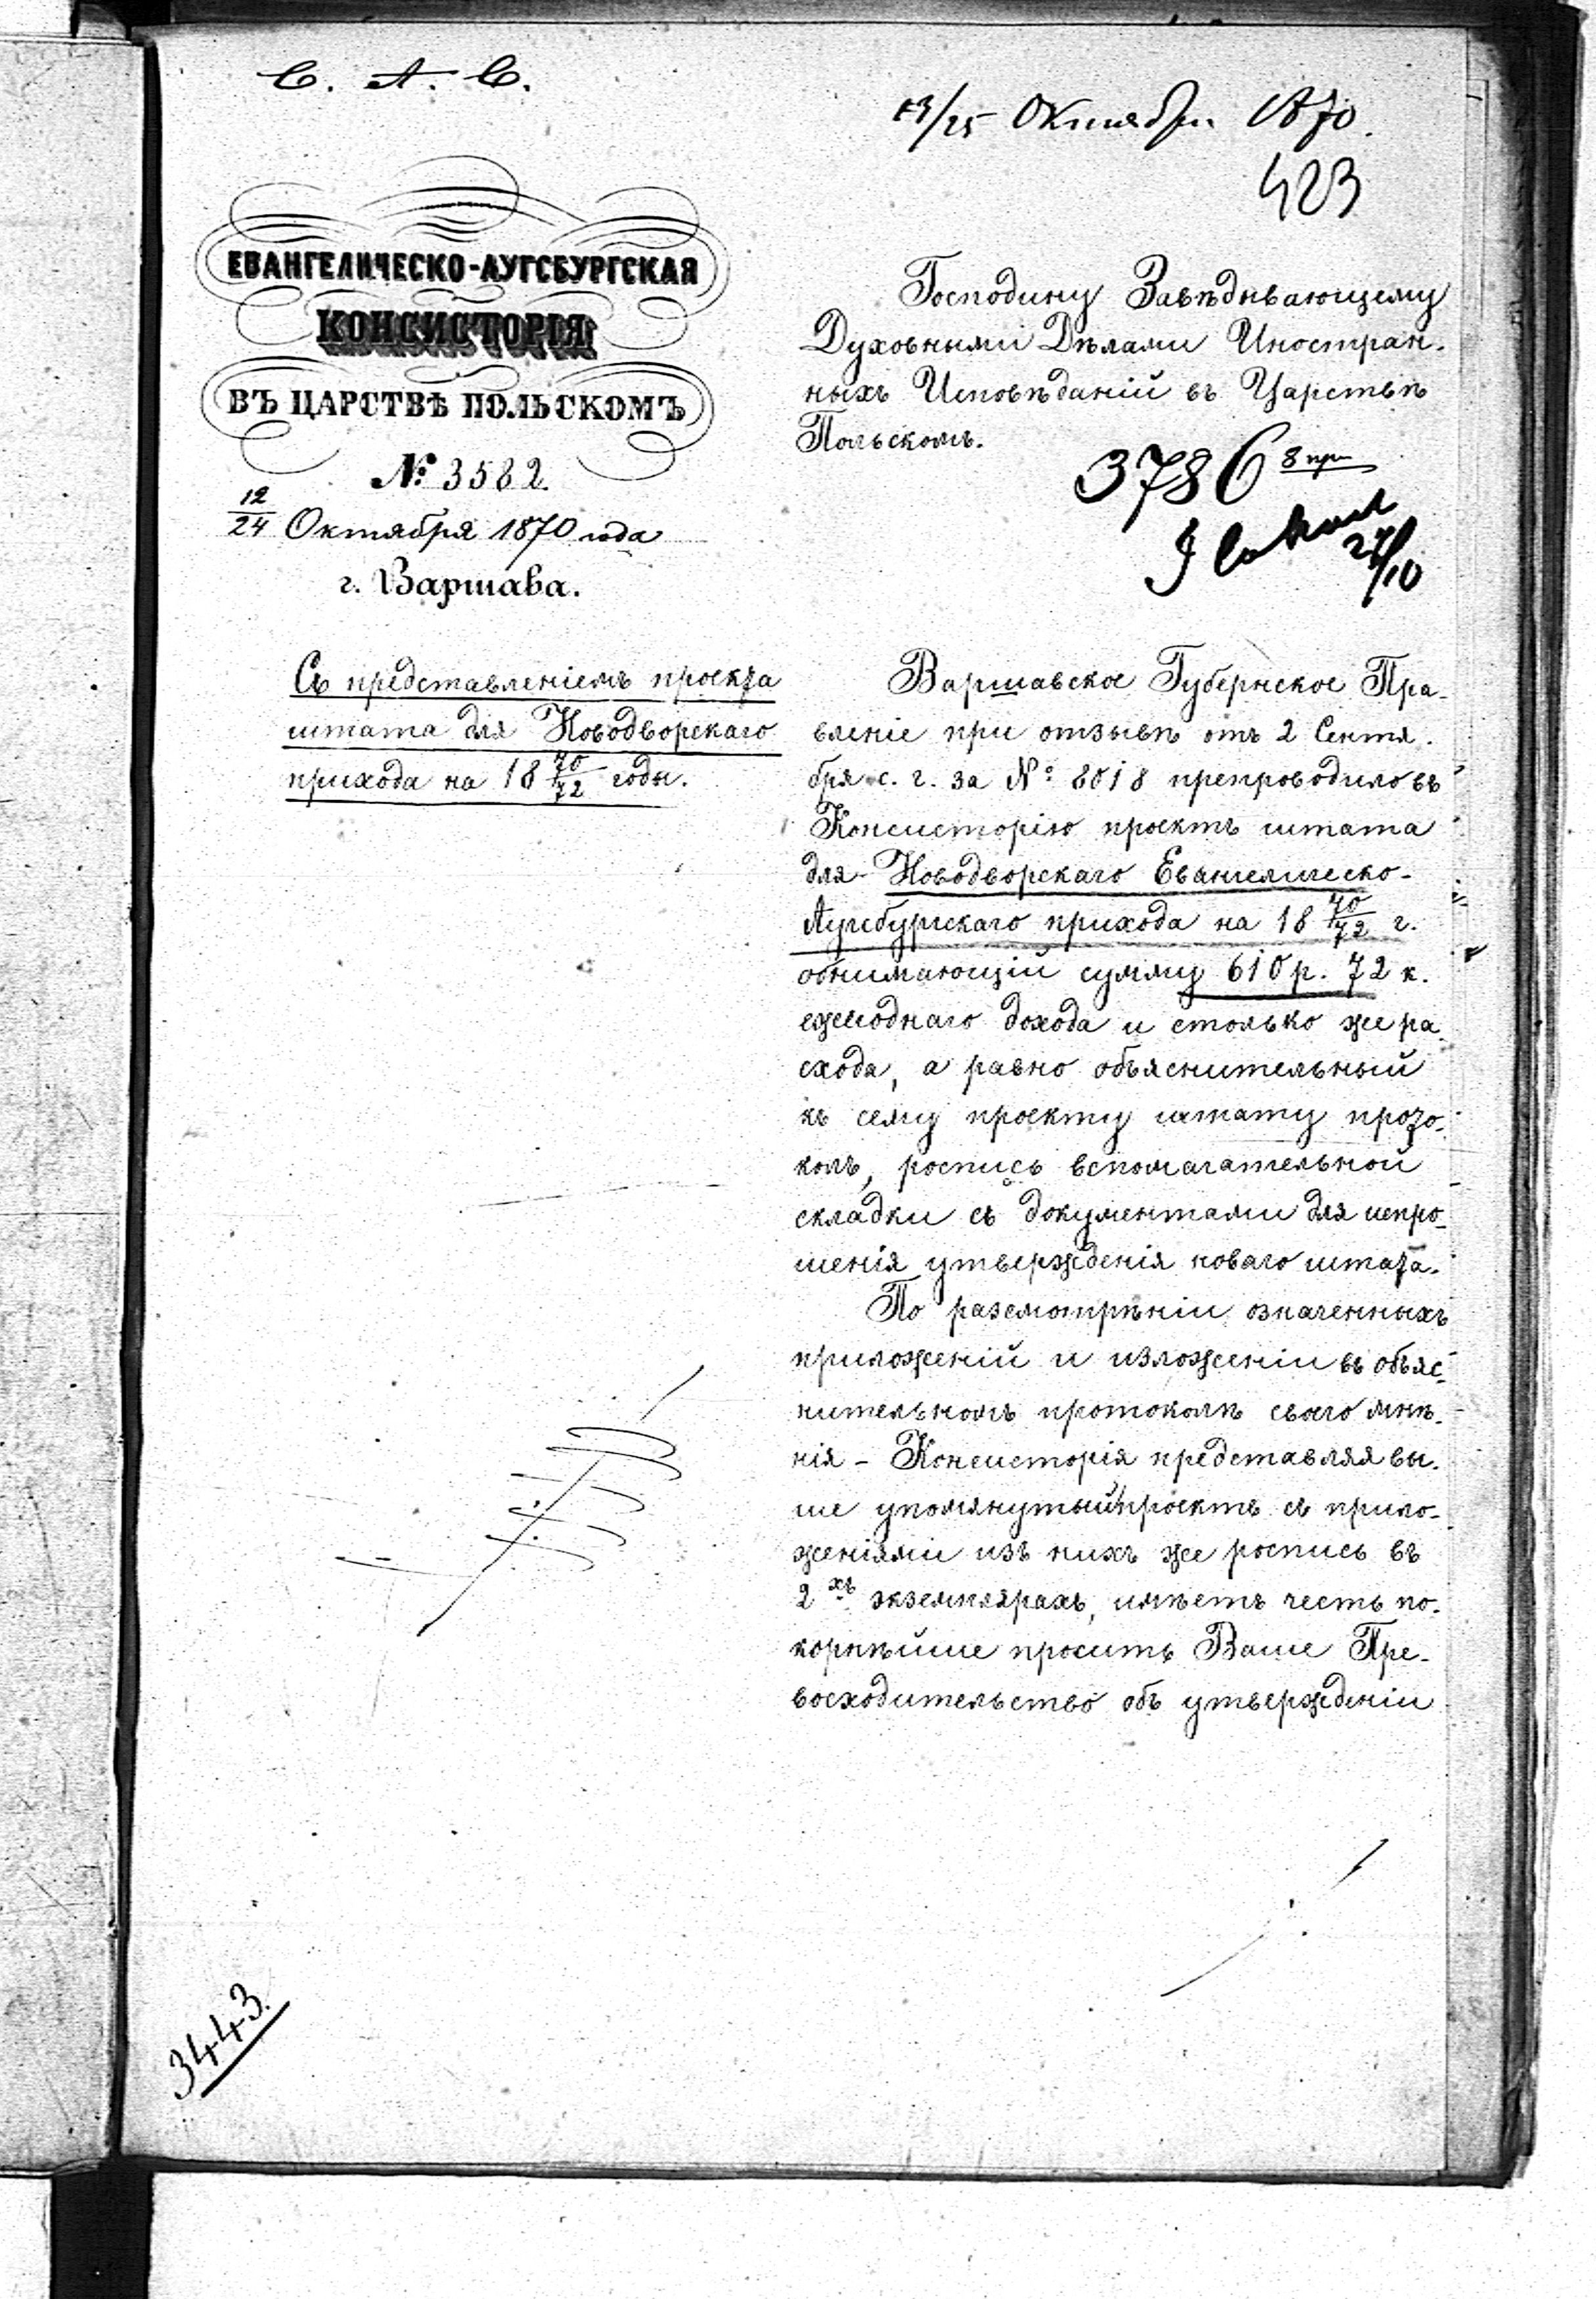 С. А. С.
13/25 Октября 1870.
423
ЕВАНГЕЛИЧЕСКО-АУГСБУРГСКАЯ
КОНСИСТОРІЯ
ВЪ ЦАРСТВѢ ПОЛЬСКОМЪ
№ 3582.
12/24 Октября 1870 года
г. Варшава.
Съ представленіемъ проекта
штата для Новодворскаго
прихода на 18 70/72 годы.
Господину Завѣдывающему
Духовными Дѣлами Иностран-
ныхъ Исповѣданій въ Царствѣ
Польскомъ.
3786 8 пр
27/10
Варшавское Губернское Пра-
вленіе при отзывѣ отъ 2 Сентя-
бря с. г. за № 8018 препроводило въ
Консисторію проектъ штата
для Новодворскаго Евангелическо-
Аугсбургскаго прихода на 18 70/72 г.
обнимающій сумму 610 р. 72 к.
ежегоднаго дохода и столько же ра-
схода, а равно объяснительный
къ сему проекту штату прото-
колъ, роспись вспомагательной
складки съ документами для испро-
шенія утвержденія новаго штата.
По разсмотрѣніи означенныхъ
приложеній и изложеніи въ объяс-
нительномъ протоколѣ своего мнѣ-
нія - Консисторія представляя вы-
ше упомянутый проектъ съ прило-
женіями изъ нихъ же роспись въ
2хъ экземплярахъ, имѣетъ честь по-
корнѣйше просить Ваше Пре-
восходительство объ утвержденіи
3443.